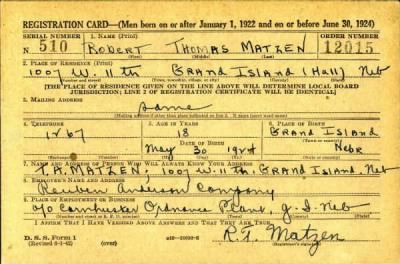 REGISTRATION CARD—(Men born on or after January 1, 1922 and on or before June 30, 1924)
SERIAL NUMBER 1. NAME (Print) ORDER NUMBER
N 510 ROBERT THOMAS MATZEN 12015
(First) (Middle) (Last)
2. PLACE OF RESIDENCE (Print)
1007 W. 11th GRAND ISLAND (Hall) Neb
(Number and street) (Town, township, village, or city) (County) (State)
[THE PLACE OF RESIDENCE GIVEN ON THE LINE ABOVE WILL DETERMINE LOCAL BOARD
JURISDICTION; LINE 2 OF REGISTRATION CERTIFICATE WILL BE IDENTICAL]
3. MAILING ADDRESS
Same
[Mailing address if other than place indicated on line 2. If same insert word same]
4. TELEPHONE 5. AGE IN YEARS 6. PLACE OF BIRTH
1267 18 GRAND ISLAND
DATE OF BIRTH
May 30 1924 Nebr
(Exchange) (Number) (Mo.) (Day) (Yr.) (State or country)
7. NAME AND ADDRESS OF PERSON WHO WILL ALWAYS KNOW YOUR ADDRESS
T. A. MATZEN, 1007 W. 11th, GRAND ISLAND, Neb
8. EMPLOYER'S NAME AND ADDRESS
Reuben Anderson Company
9. PLACE OF EMPLOYMENT OR BUSINESS
c/o Cornhusker Ordnance Plant, G. I. Neb
(Number and street or R. F. D. number) (Town) (County) (State)
I AFFIRM THAT I HAVE VERIFIED ABOVE ANSWERS AND THAT THEY ARE TRUE.
D. S. S. Form 1
(Revised 6-9-42) (over) R. T. Matzen
(Registrant's signature)